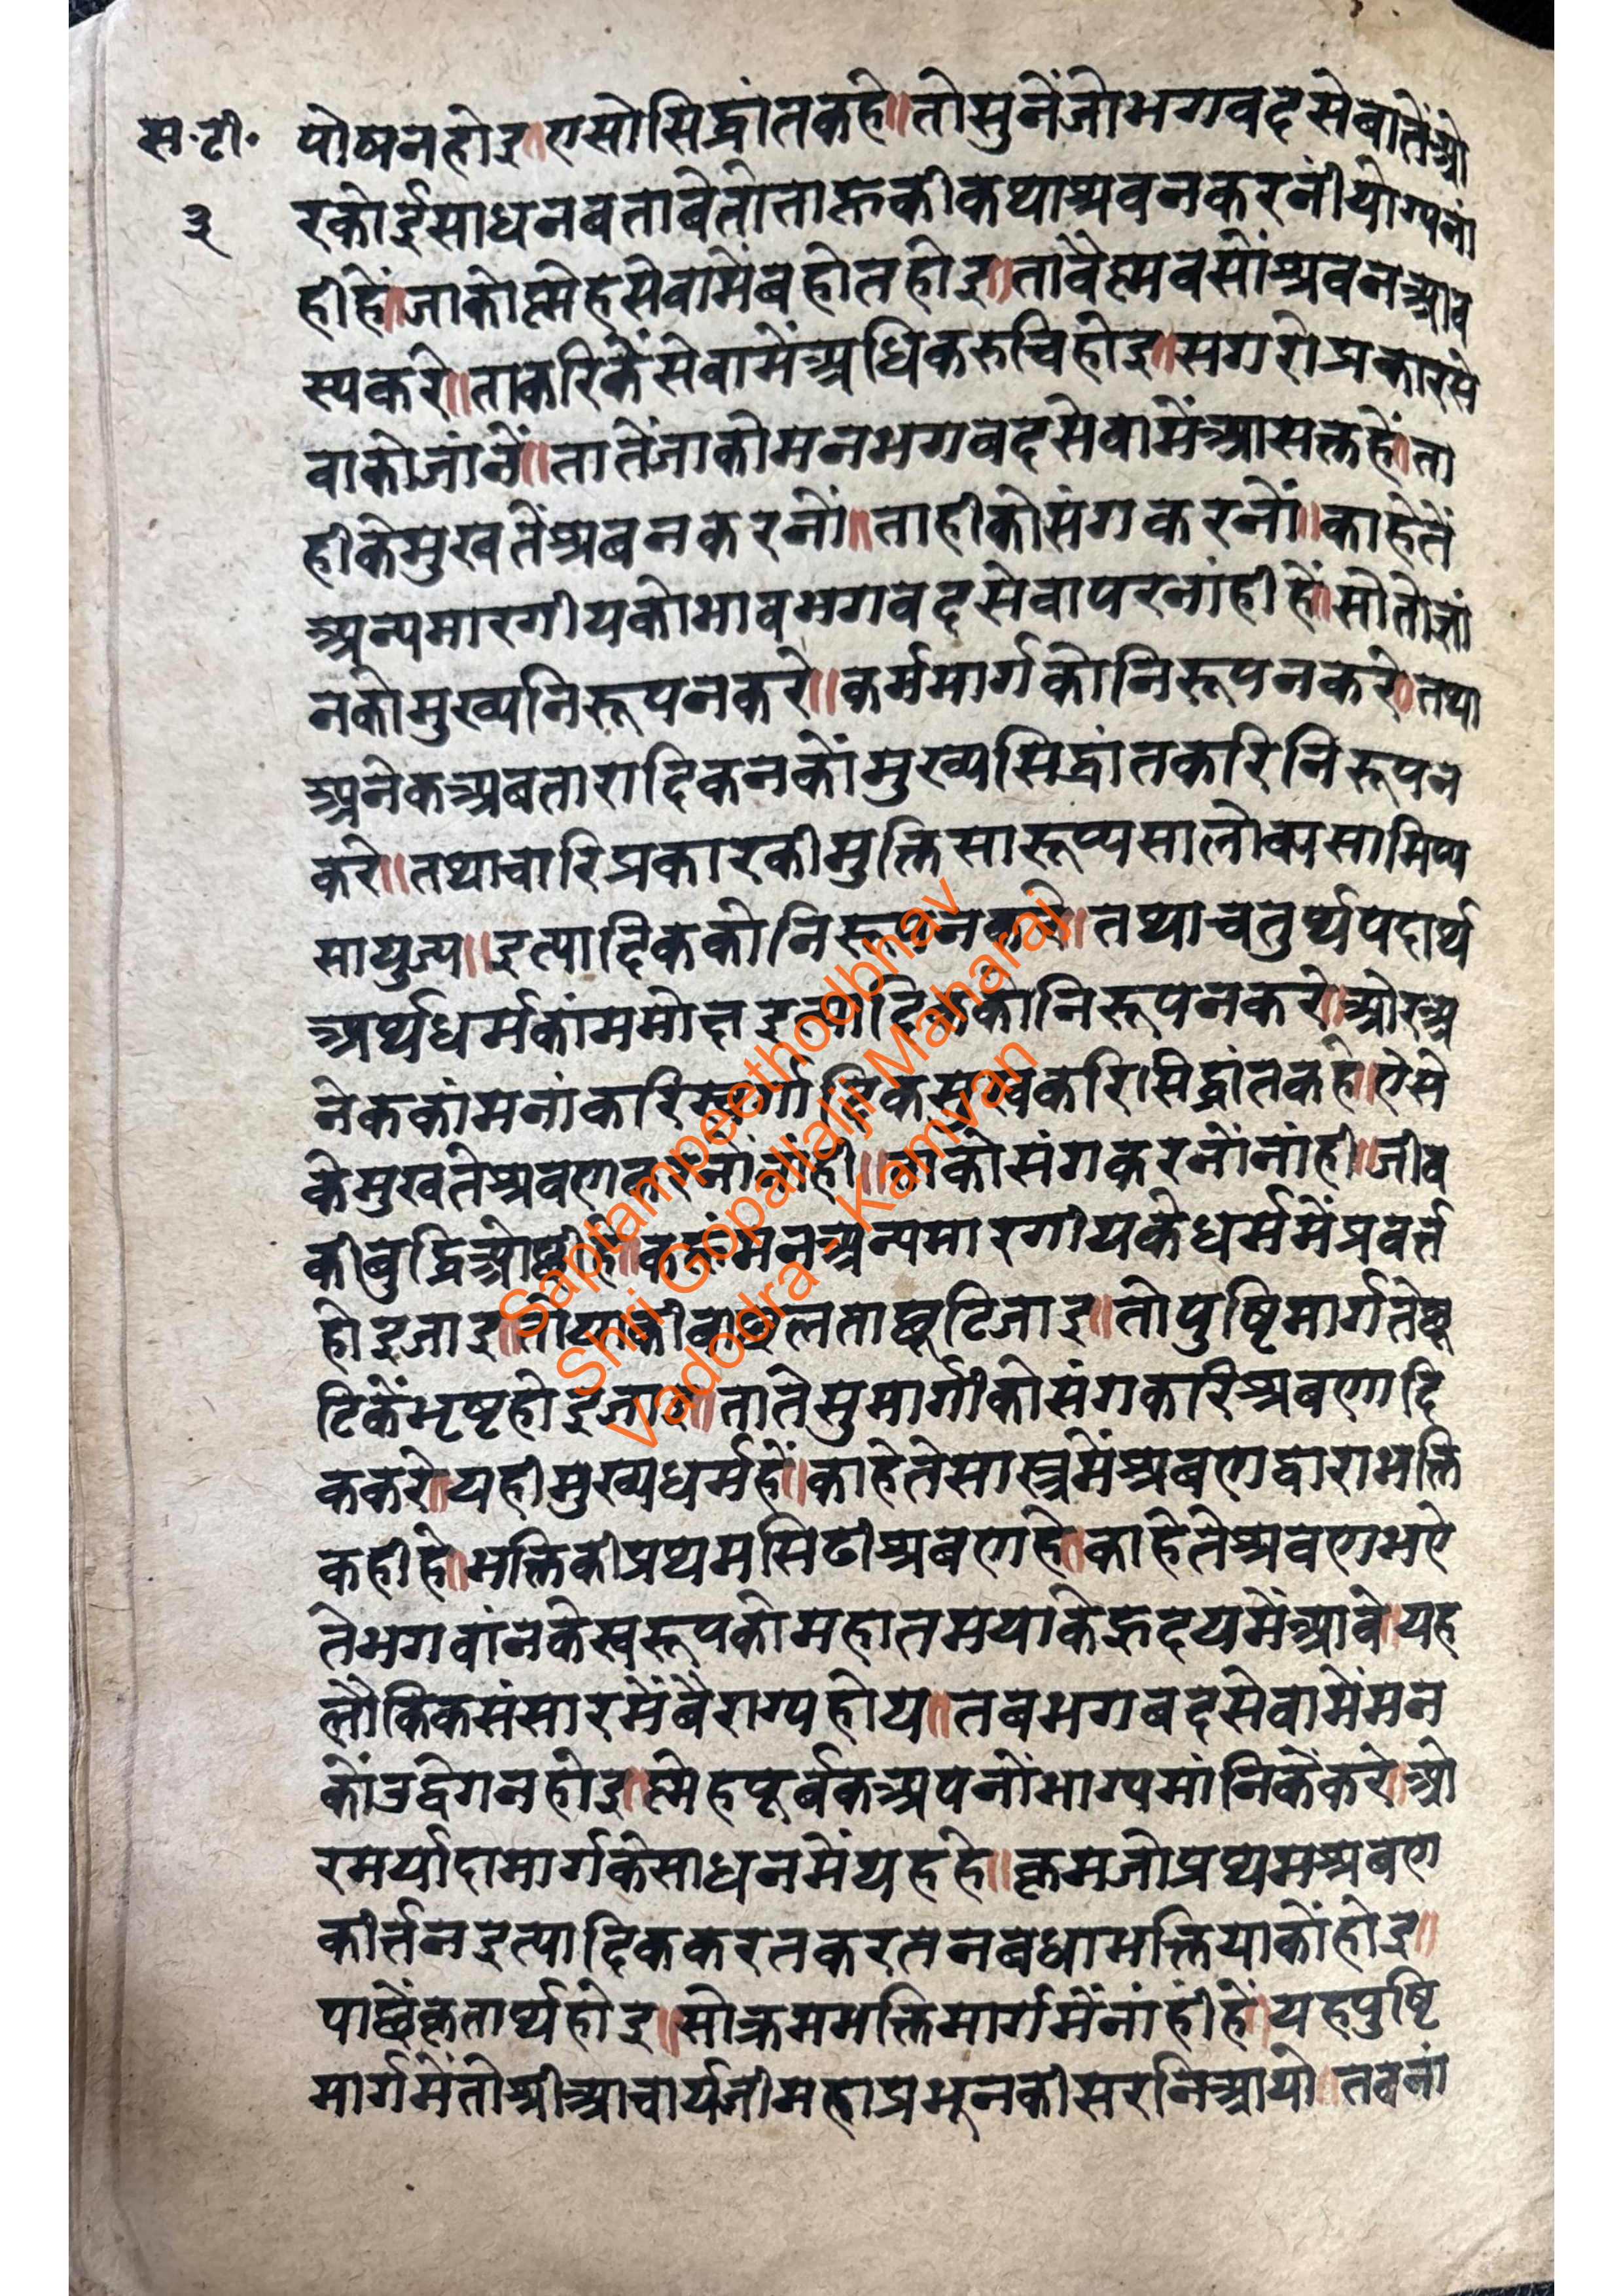 स॰टी॰
३
पोषनहोइ॥एसोसिद्धांतकहे॥तोसुनेंजोभगवदसेबातेंओ
रकोईसाधनबतावेतोताहूकीकथाश्रवनकरनींयोग्यनां
हीहें॥जाकोस्नेहसेवामेंबहोतहोइ॥तावैस्मवसोंश्रवनआव
स्यकरे॥ताकरिकेंसेवामेंअधिकरुचिहोइ॥सगरोप्रकारसे
वाकोजांनें॥तातेंजाकोमनभगवदसेवामेंआसक्तहें॥ता
हीकेमुखतेंश्रबनकरनों॥ताहीकोसंगकरनों॥काहेतें
अन्यमारगीयकोभावभगवदसेवापरनांहीहें॥सोतोजां
नकोमुख्यनिरूपनकरे॥कर्ममार्गकोनिरूपनकरे॥तथा
अनेकअबतारादिकनकोंमुख्यसिद्धांतकरिनिरूपन
करे॥तथाचारिप्रकारकीमुक्तिसारूप्यसालोक्यसामिप्य
सायुज्य॥इत्यादिककोनिरूपनकरे॥तथाचतुर्थपदार्थ
अर्थधर्मकांममोक्षइत्यादिककोनिरूपनकरे॥ओरअ
नेककांमनांकरिस्वर्गादिकसुखकरिसिद्धांतकहे॥ऐसे
केमुखतेश्रवणकरनोंनांही॥ताकोसंगकरनोंनांही॥जीव
कीबुद्धिओछीहै॥कहूंमनअन्यमारगीयकेधर्ममेंप्रवर्त्त
होइजाइ॥तोयाकीबाछलताछूटिजाइ॥तोपुष्टिमार्गतेछू
टिकेंभृष्टहोइजाइ॥तातेसुमार्गीकोसंगकरिश्रबणादि
ककरे॥यहीमुख्यधर्महें॥काहेतेसास्त्रमेंश्रबणद्वाराभक्ति
कहीहे॥भक्तिकीप्रथमसिढीश्रबणहे॥काहेतेश्रवणभऐ
तेभगवांनकेस्वरूपकोमहातमयाकेह्रदयमेंआवे॥यह
लौकिकसंसारमेंबैराग्यहोय॥तबभगबदसेवामेंमन
कोंउद्वेगनहोइ॥स्नेहपूर्बकअपनोंभाग्यमांनिकेंकरे॥ओ
रमर्यादामार्गकेसाधनमेंयहहे॥क्रमजोप्रथमश्रबण
कीर्त्तनइत्यादिककरतकरतनबधाभक्तियाकोंहोइ॥
पाछेंकृतार्थहोइ॥सोक्रमभक्तिमार्गमेंनांहींहें॥यहपुष्टि
मार्गमेंतोश्रीआचार्यजीमहाप्रभूनकीसरनिआयो॥तबनां
Saptampeethodbhav
Shri Gopallalji Maharaj
Vadodra Kamvan